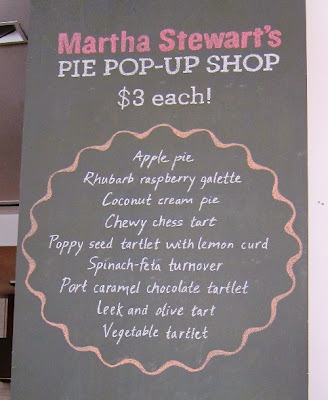 Martha Stewart's
PIE POP-UP SHOP
$3 each!
Apple pie
Rhubarb raspberry galette
Coconut cream pie
Chewy chess tart
Poppy seed tartlet with lemon curd
Spinach-feta turnover
Port caramel chocolate tartlet
Leek and olive tart
Vegetable tartlet